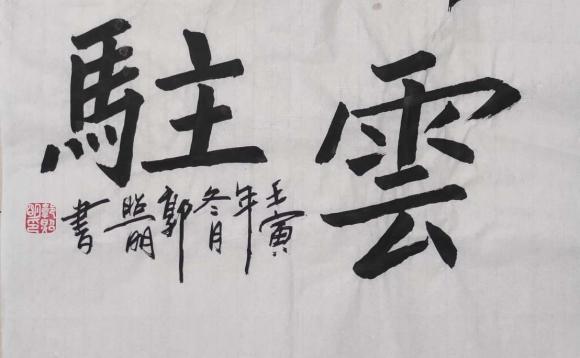 雲駐
壬寅年冬月郭照明書